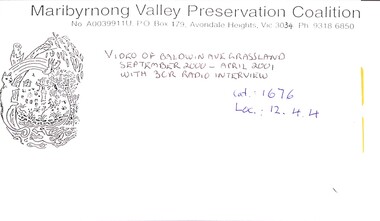 Maribyrnong Valley Preservation Coalition
No A0039911U, P O Box 179, Avondale Heights, Vic 3034 Ph 9318 6850
VIDEO OF BALDWIN AVE GRASSLAND
SEPTEMBER 2000 - APRIL 2001
WITH 3CR RADIO INTERVIEW
Cat.: 1676
Loc.: 12.4.4